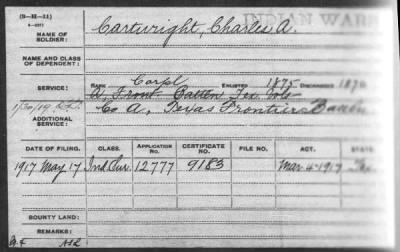 (3-H-11)
INDIAN WARS
NAME OF SOLDIER: Cartwright, Charles A.
NAME AND CLASS OF DEPENDENT:
SERVICE: RANK Corpl ENLISTED 1875 DISCHARGED 1876
A, Front. Batten Tex. Vols
Co A, Texas Frontiers
ADDITIONAL SERVICE:
DATE OF FILING. CLASS. APPLICATION NO. CERTIFICATE NO. FILE NO. ACT. STATE.
1917 May 17 Ind. Sur. 12777 9183 Mar. 4-1917 Tex.
BOUNTY LAND:
REMARKS: